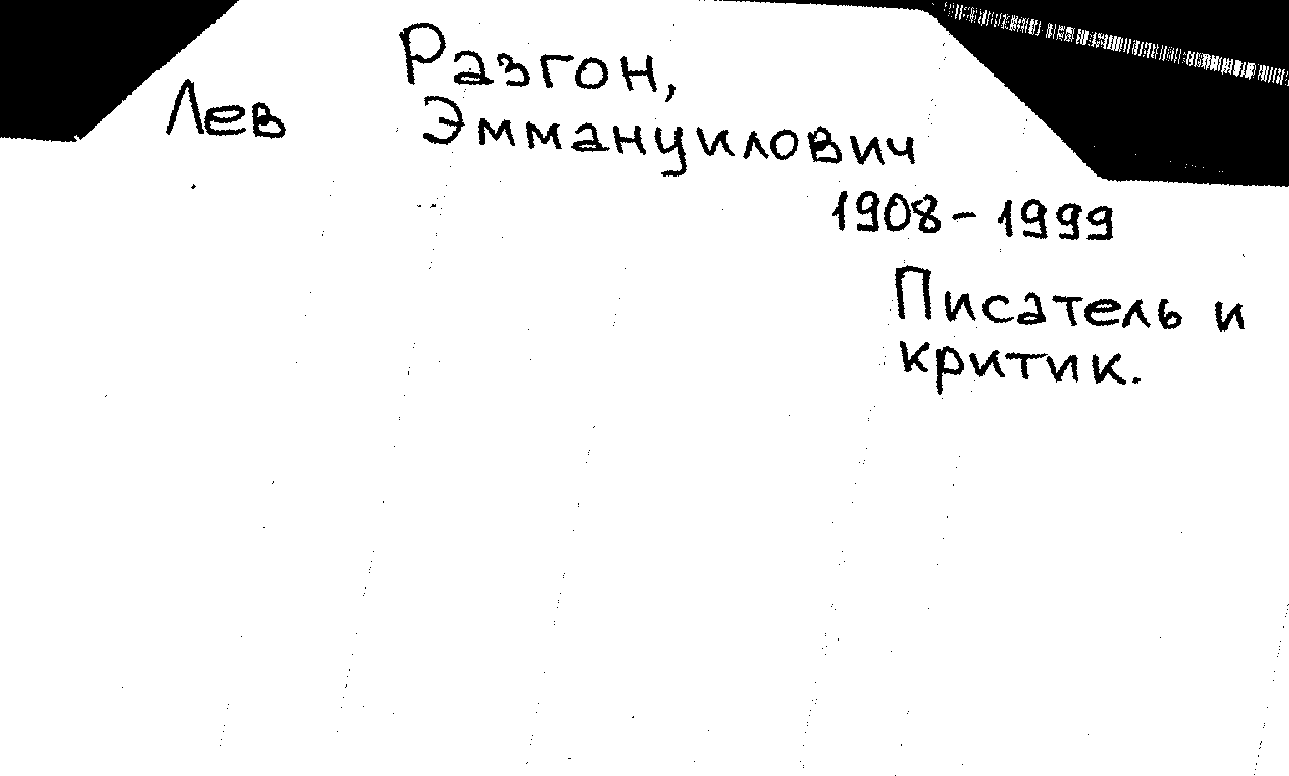 Разгон,
Лев Эммануилович
1908 - 1999
Писатель и
критик.